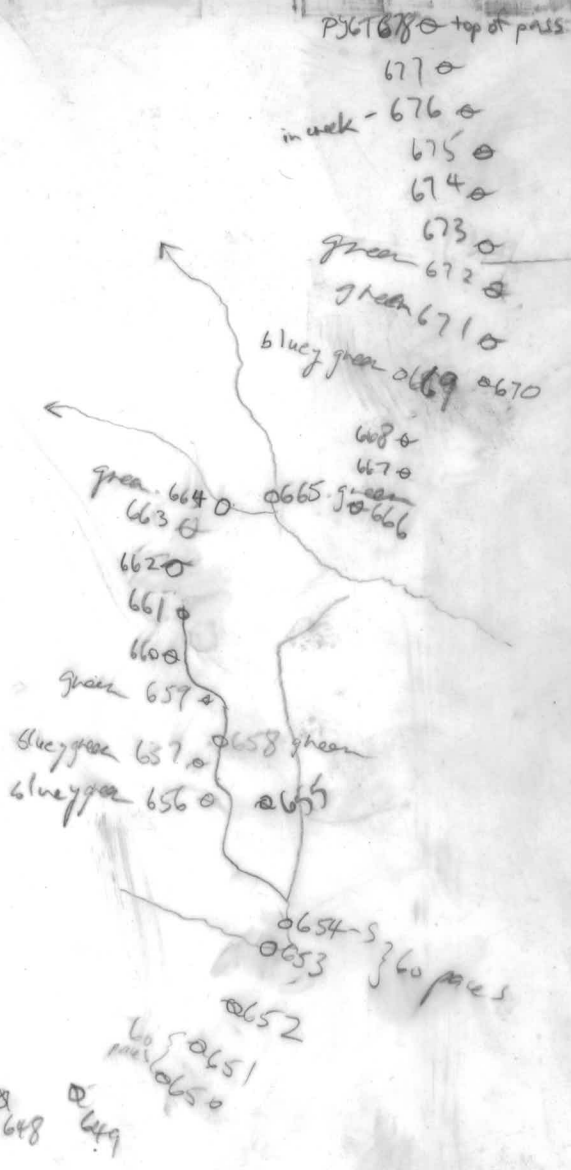 PJ6T678 top of pass
677
in creek - 676
675
674
673
green 672
green 671
bluey green 669 670
668
667
green 664 665 green
663 666
662
661
660
green 659
658 green
bluey green 657
bluey green 656 655
654-S
653 } 60 paces
652
60 paces { 651
650
648 649